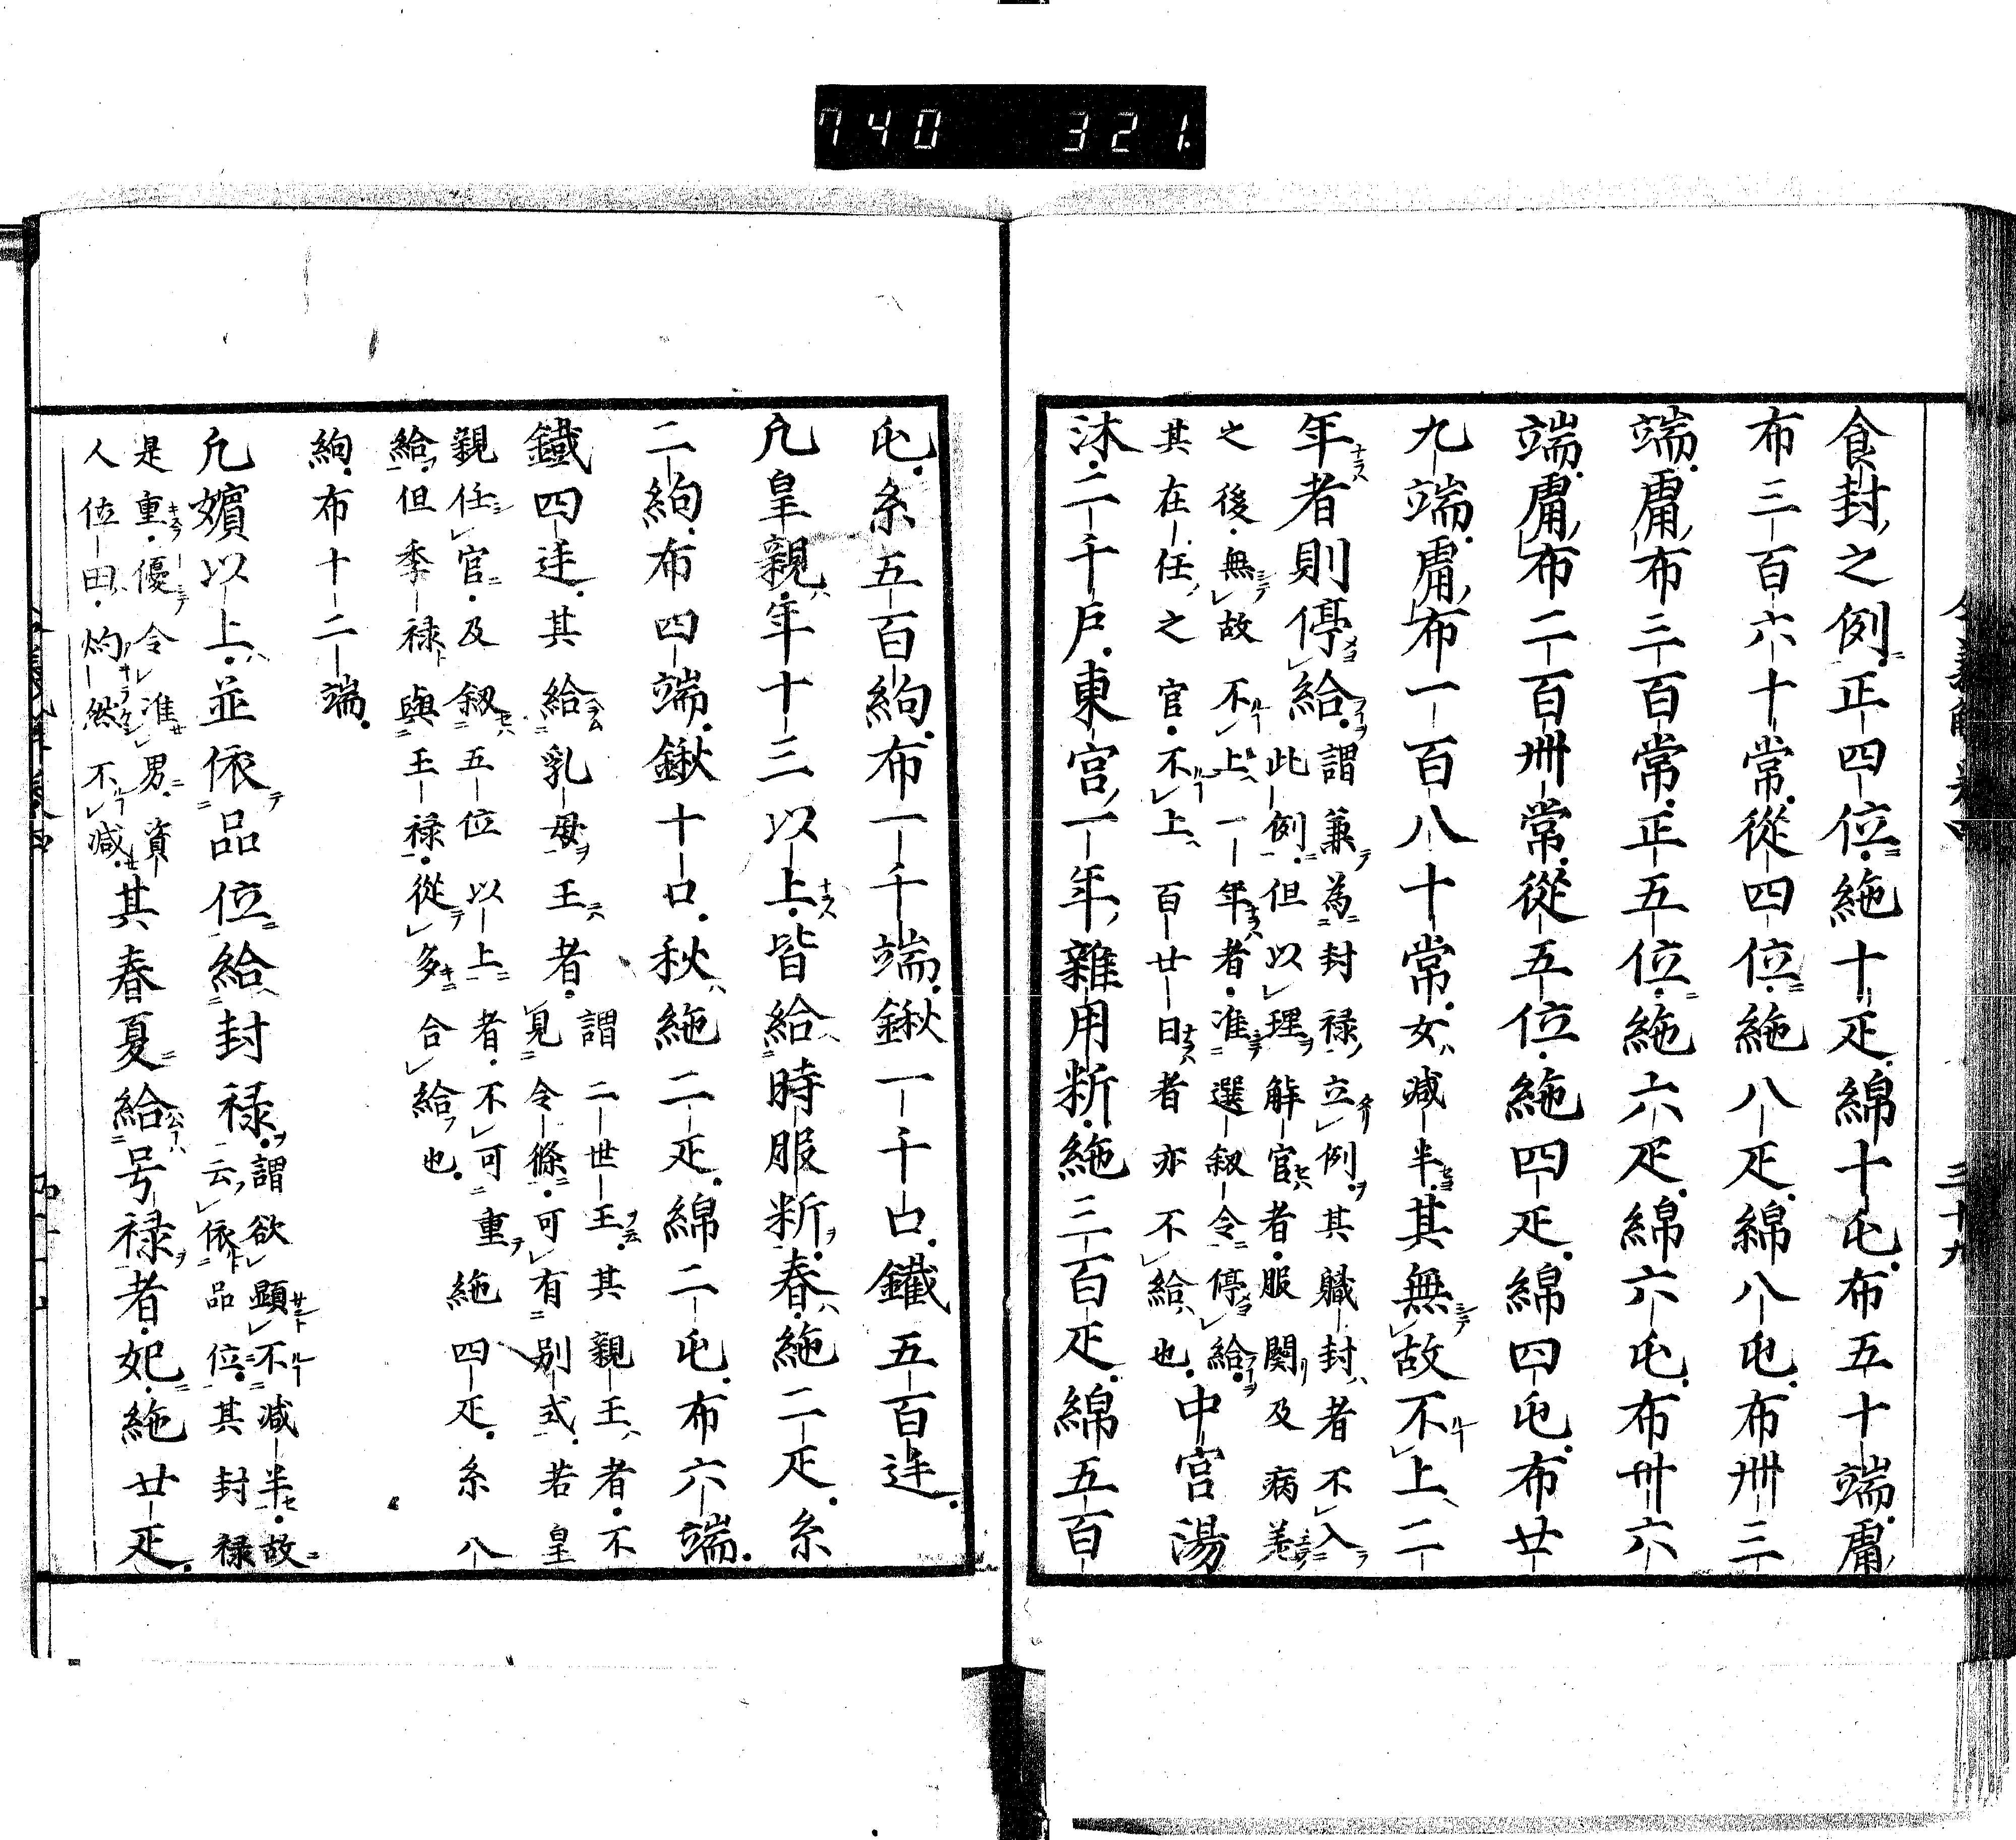 740 321
三十九
食封之例。正四位。絁十疋。綿十屯。布五十端。庸
布三百六十常。從四位。絁八疋。綿八屯。布卌三
端。庸布三百常。正五位。絁六疋。綿六屯。布卅六
端。庸布二百卌常。從五位。絁四疋。綿四屯。布廿
九端。庸布一百八十常。女減半。其無故不上二
年者則停給。謂兼為封禄立例。其職封者不入
此例。但以理解官者。服闋及病差
之後。無故不上一年者。准選叙令停給。
其在任之官。不上百廿日者亦不給也。中宮湯
沐。二千戶。東宮一年雜用䉼。絁三百疋。綿五百
屯。糸五百絇。布一千端。鍬一千口。鐵五百廷。
凡皇親。年十三以上。皆給時服䉼。春。絁二疋。糸
二絇。布四端。鍬十口。秋絁二疋。綿二屯。布六端。
鐵四廷。其給乳母王者。謂二世王。其親王者。不
見令條。可有別式。若皇
親任官。及叙五位以上者。不可重
給。但季禄與王禄。從多合給也。絁四疋。糸八
絇。布十二端。
凡嬪以上。並依品位給封禄。謂欲顯不減半。故
云依品位。其封禄
是重。優令准男。資
人位田。灼然不減。其春夏給号禄者。妃。絁廿疋。